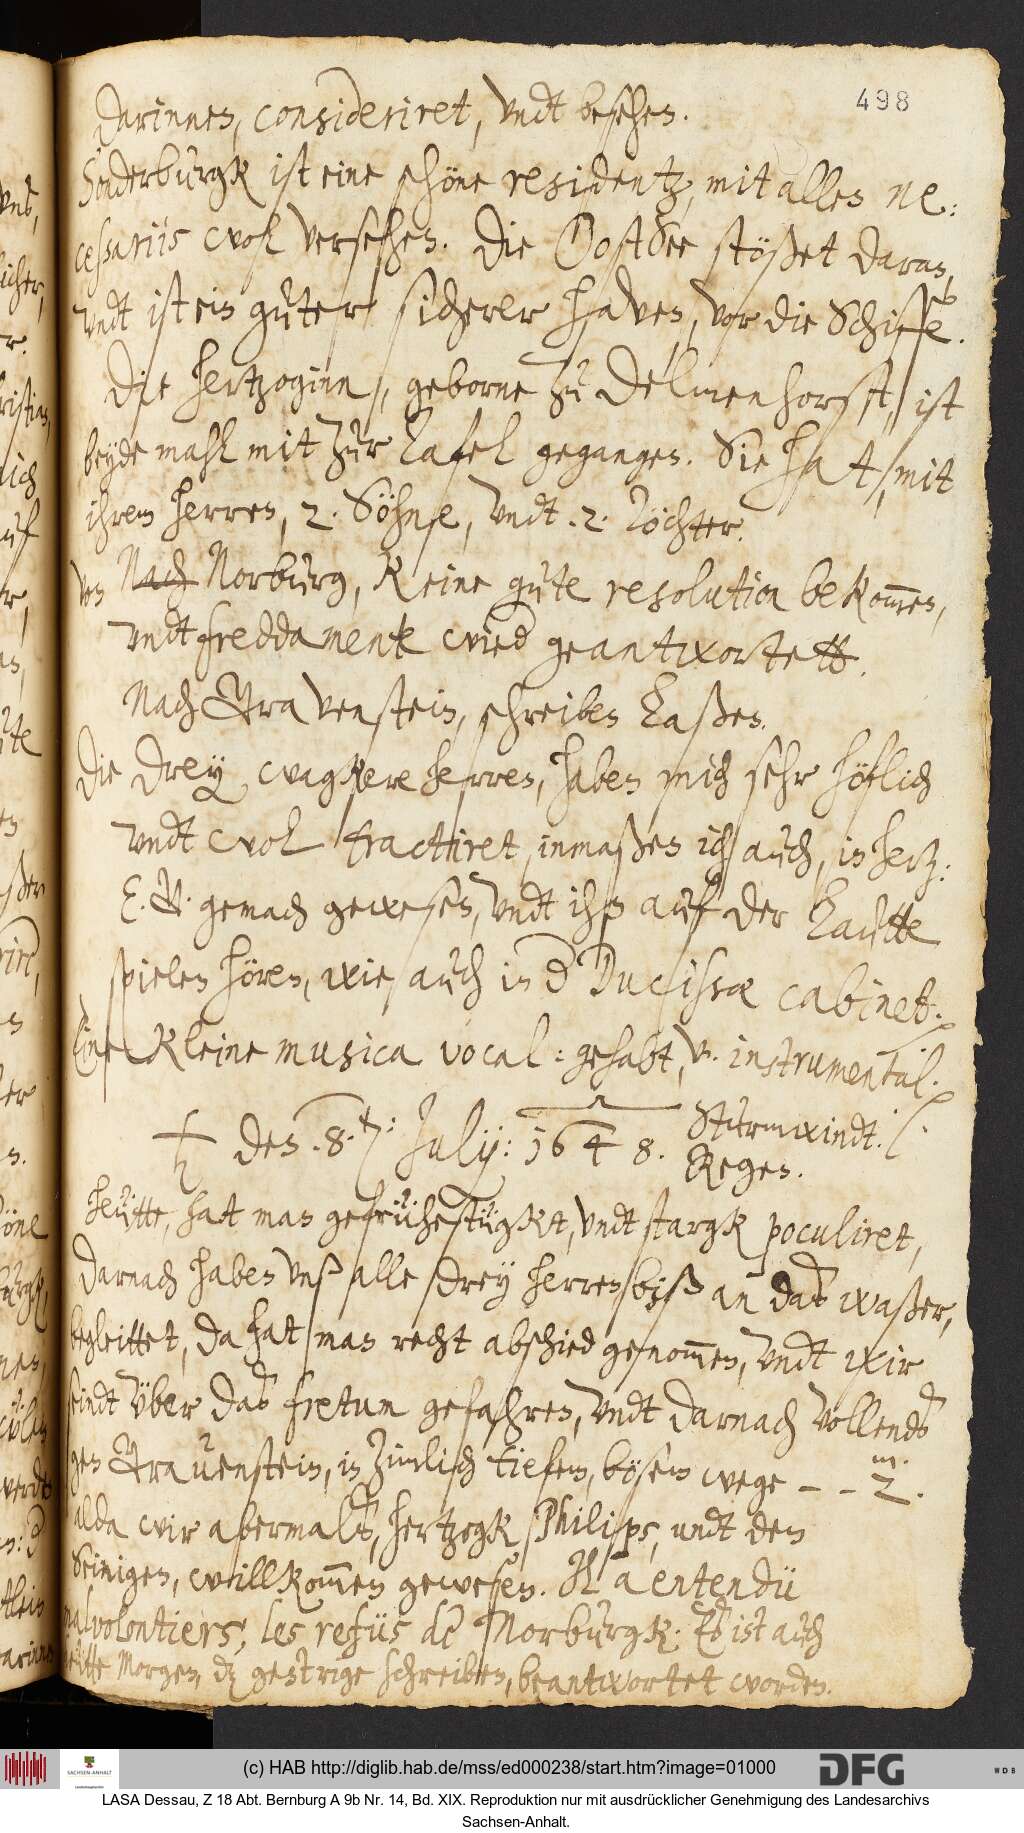 498
darinnen, consideriret, vndt besehen.
Sonderburgk ist eine schöne residentz, mit allen ne:
cessariis wol versehen. Die OostSee stößet daran,
vndt ist ein guter sicherer haven, vor die Schiffe.
Die Hertzoginn, geborne zu Delmenhorst, ist
beyde mahl mit zur Tafel gegangen. Sie hat, mit
ihrem herren, 2. Söhne, vndt .2. Töchter.
Von Nach Norburg, keine gute resolution bekom̄en,
vndt freddamente wird geantwortett.
Nach Gravenstein, schreiben laßen.
Die drey wagkere herren, haben mich sehr höflich
vndt wol tractiret, inmaßen ich auch, in herz:
E. G. gemach gewesen, vndt ihn auf der Lautte
spielen hören, wie auch in d Ducissæ cabinet.
Eine kleine musica vocal: gehabt, v. instrumental.
♄ den .8.ten: July: 1648. Sturmwindt.
Regen.
Heütte, hat man gefrühestügkt, vndt stargk poculiret,
darnach haben vnß alle drey herren, biß an das waßer,
begleittet, da hat man recht abschied genom̄en, vndt wir
seindt vber das fretum gefahren, vndt darnach vollends
gen Gravenstein, in zimlich tiefem, bösem wege – – 2.
m.
alda wir abermals, hertzogk Philips, undt den
Seinigen, willkom̄en gewesen. Il a entendü
malvolontiers, les refüs de Norburgk. Es ist auch
heütte Morgen, dz gestrige schreiben, beantwortet worden.
(c) HAB http://diglib.hab.de/mss/ed000238/start.htm?image=01000
SACHSEN-ANHALT
DFG
WDB
LASA Dessau, Z 18 Abt. Bernburg A 9b Nr. 14, Bd. XIX. Reproduktion nur mit ausdrücklicher Genehmigung des Landesarchivs
Sachsen-Anhalt.